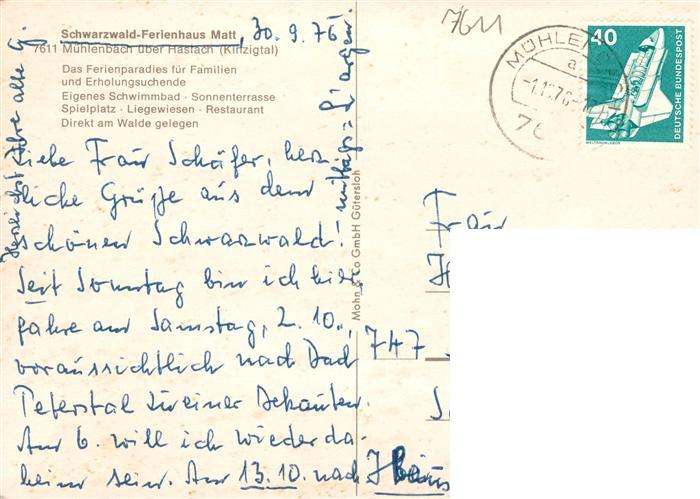 Schwarzwald-Ferienhaus Matt, 30.9.76
7611 Mühlenbach über Haslach (Kinzigtal)
Das Ferienparadies für Familien
und Erholungsuchende
Eigenes Schwimmbad · Sonnenterrasse
Spielplatz · Liegewiesen · Restaurant
Direkt am Walde gelegen
Liebe Frau Schäfer, herz-
liche Grüße aus dem
schönen Schwarzwald!
Seit Sonntag bin ich hier,
fahre am Samstag, 2.10.,
voraussichtlich nach Bad
Peterstal zu einer Bekannten.
Am 6. will ich wieder da-
heim sein. Am 13.10. nach
mittags =
Herzlichst Ihre alte G.
Mohn & Co GmbH Gütersloh
7611
MÜHLENB
a
-1.10.76
76
40
DEUTSCHE BUNDESPOST
WELTRAUMLABOR
Frau
747